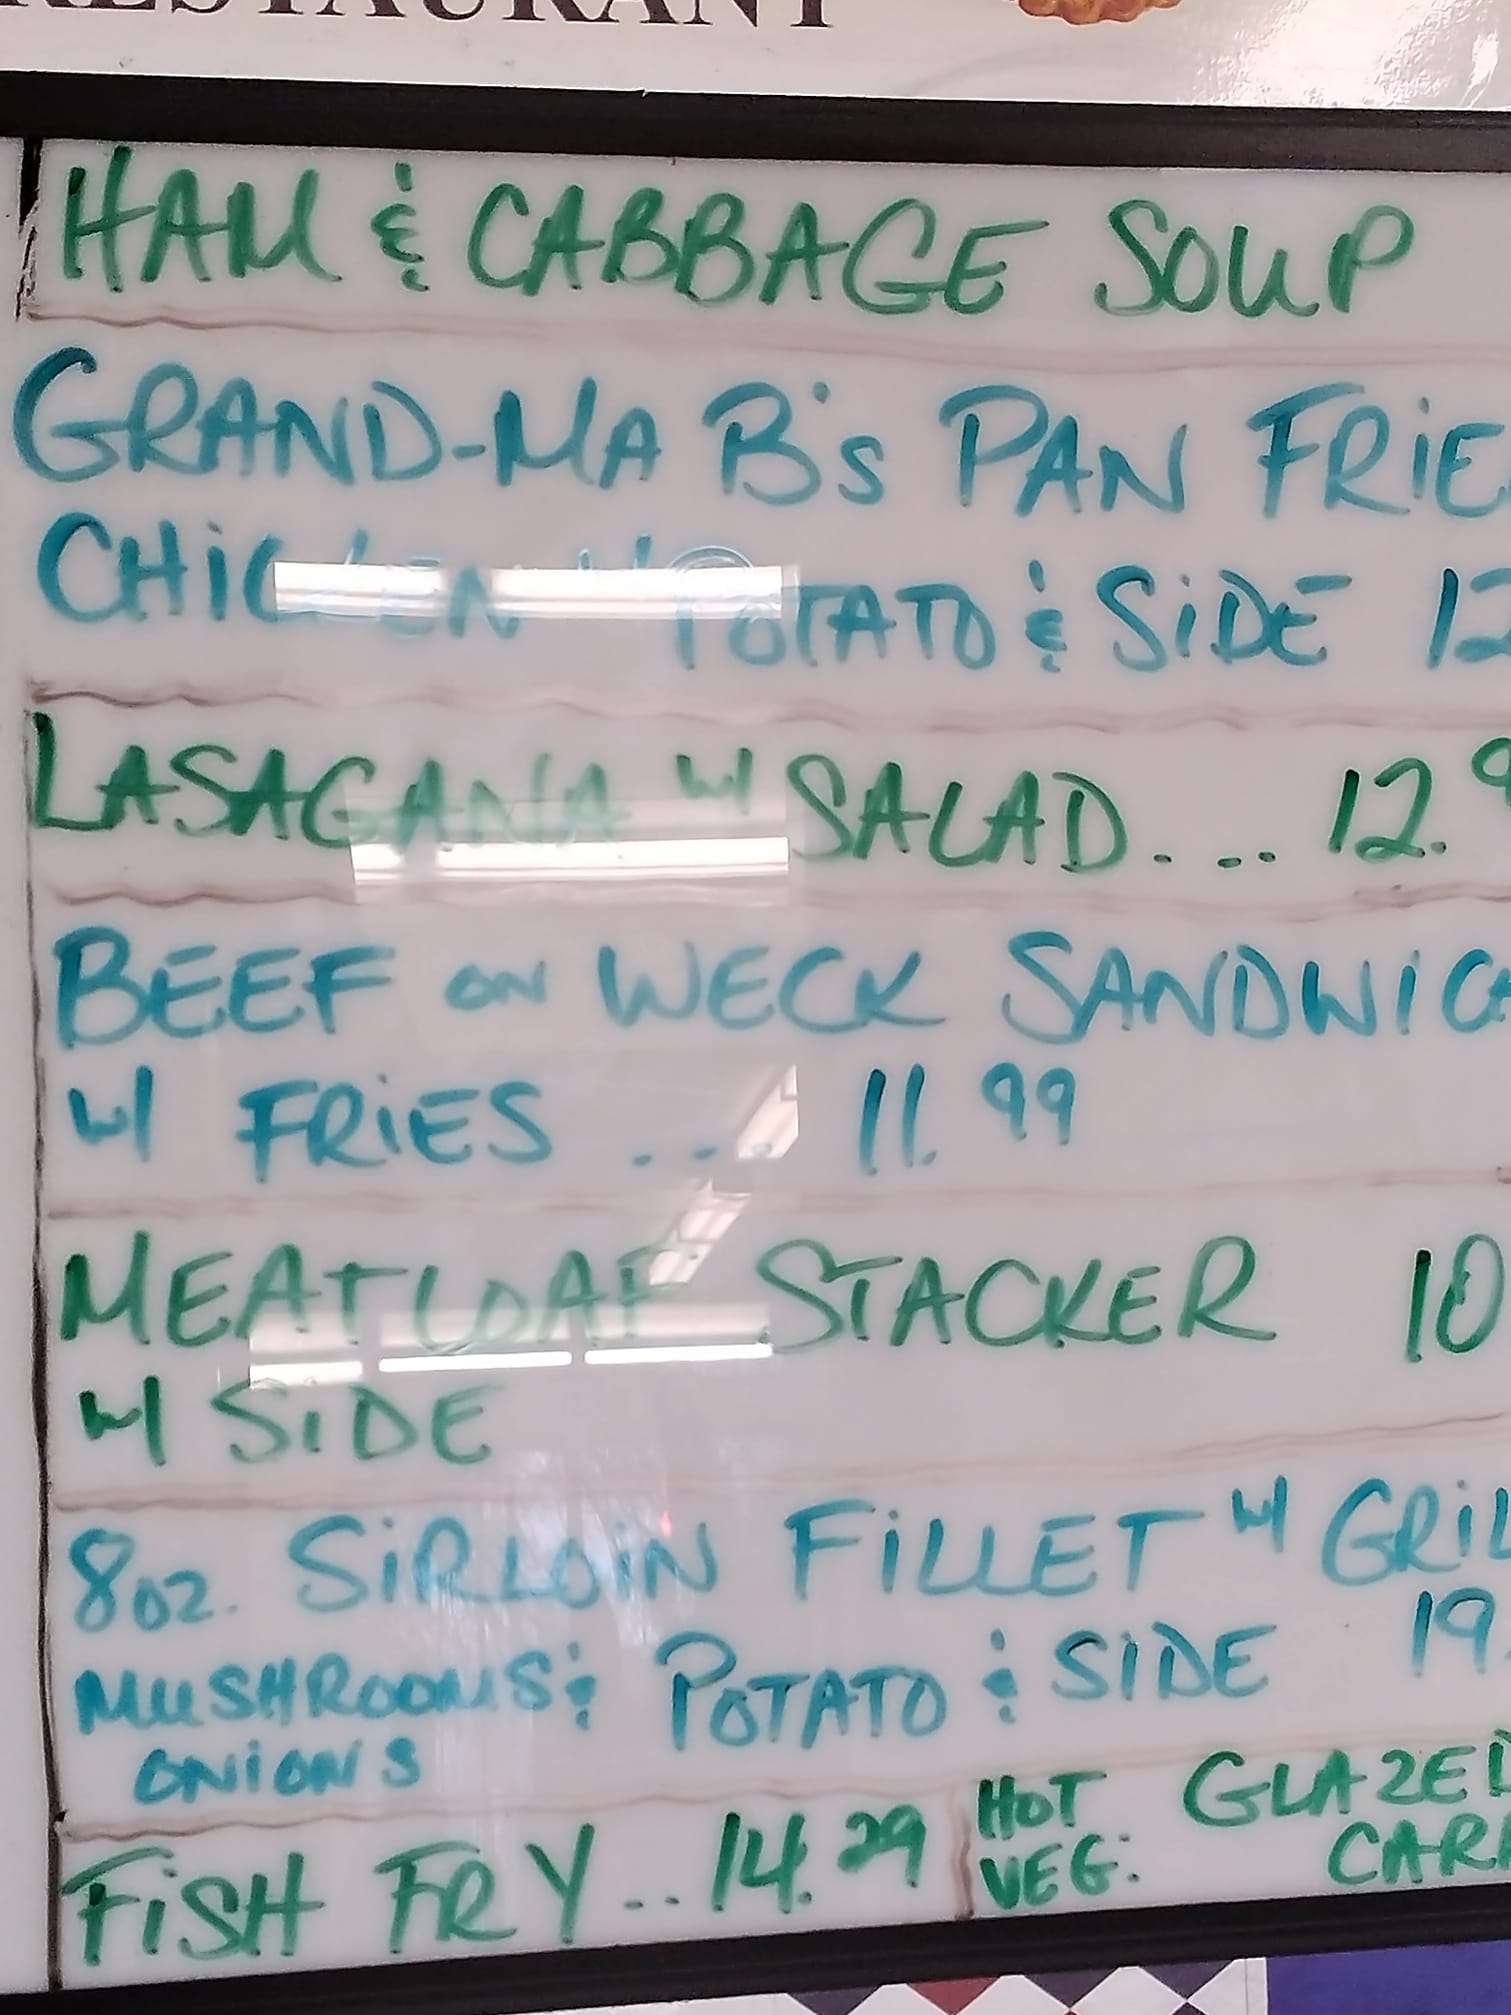 RESTAURANT
HAM & CABBAGE SOUP
GRAND-MA B's PAN FRIE
CHICKEN W/ POTATO & SIDE 12
LASAGANA W/ SALAD... 12.9
BEEF ON WECK SANDWIC
W/ FRIES .... 11.99
MEATLOAF STACKER 10
W/ SIDE
8oz. SIRLOIN FILLET W/ GRIL
MUSHROOMS & POTATO & SIDE 19.
ONIONS
FISH FRY... 14.29
HOT GLAZED
VEG: CARR